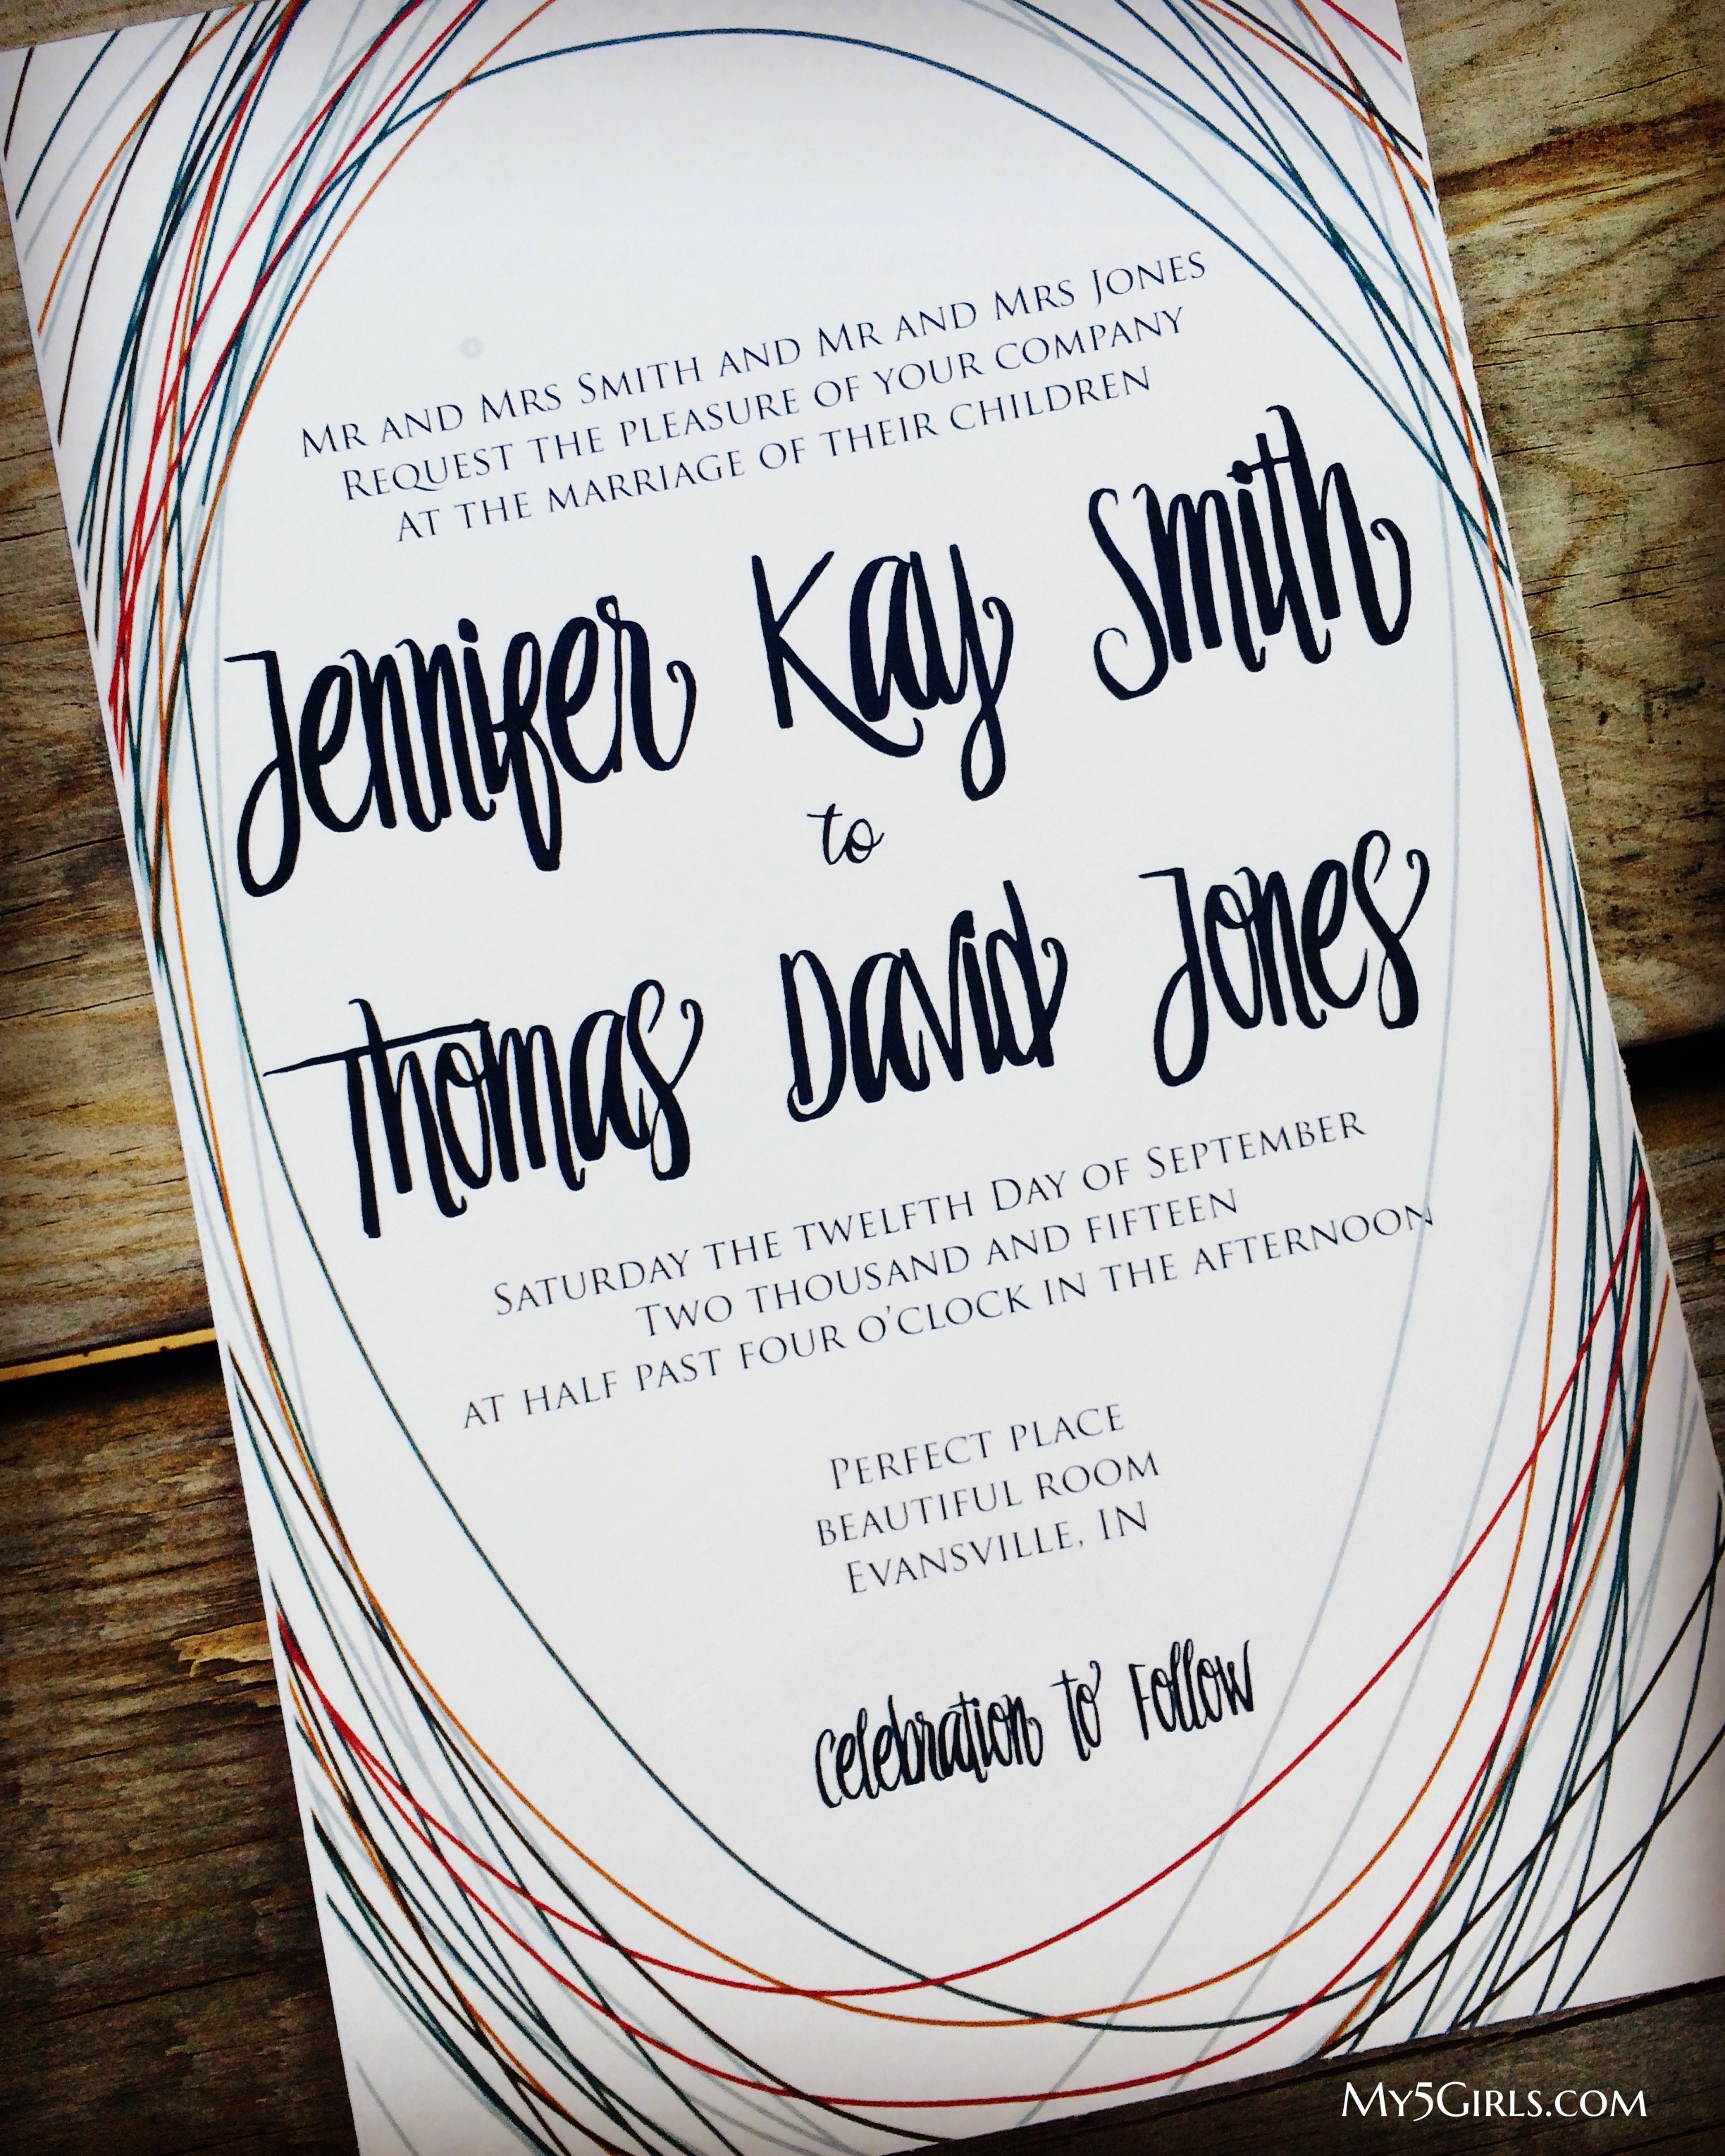 Mr and Mrs Smith and Mr and Mrs Jones
Request the pleasure of your company
at the marriage of their children
Jennifer Kay Smith
to
Thomas David Jones
Saturday the twelfth Day of September
Two thousand and fifteen
at half past four o'clock in the afternoon
Perfect place
beautiful room
Evansville, IN
celebration to Follow
My5Girls.com